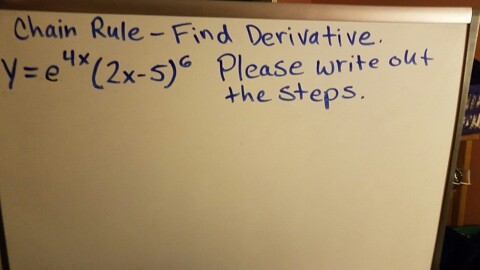 Chain Rule – Find Derivative.
y = e^{4x}(2x-5)^6 Please write out
the steps.